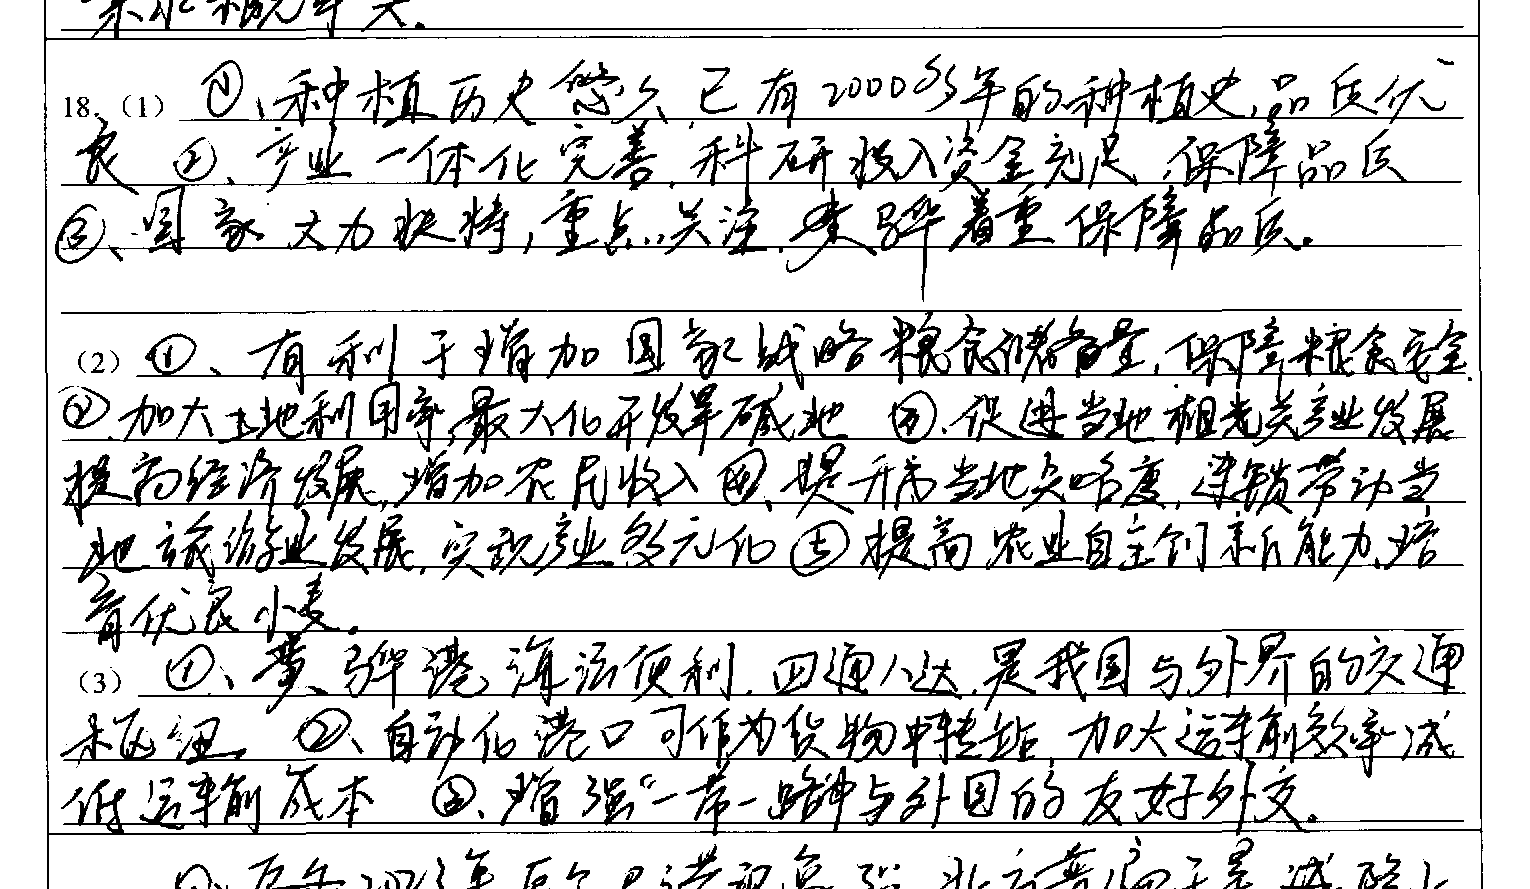 18.（1）①、种植历史悠久，已有2000多年的种植史，品质优
良 ②、产业一体化完善，科研投入资金充足，保障品质
③、国家大力扶持，重点关注，黄骅着重保障品质。
（2）①、有利于增加国家战略粮食储备量，保障粮食安全
②、加大土地利用率，最大化开发旱碱地 ③、促进当地相关产业发展
提高经济发展，增加农民收入 ④、提升当地知名度，连锁带动当
地旅游业发展，实现产业多元化 ⑤提高农业自主创新能力，培
育优良小麦。
（3）①、黄骅港海运便利，四通八达，是我国与外界的交通
枢纽。 ②、自动化港口可作为货物中转站，加大运输效率，减
低运输成本 ③、增强“一带一路”中与外国的友好外交。